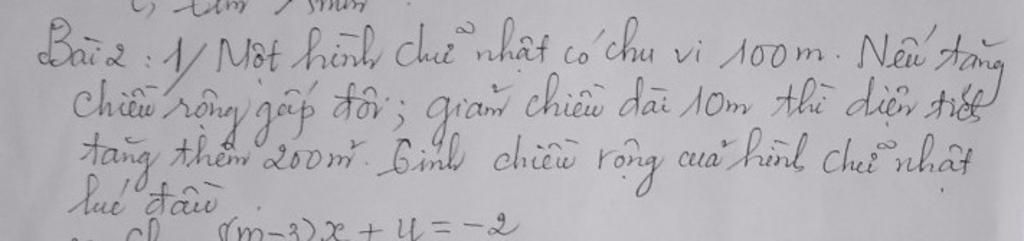 Bài 2 : 1/ Một hình chữ nhật có chu vi 100m. Nếu tăng
chiều rộng gấp đôi; giảm chiều dài 10m thì diện tích
tăng thêm 200m². Tính chiều rộng của hình chữ nhật
lúc đầu.
(m-3)x + y = -2